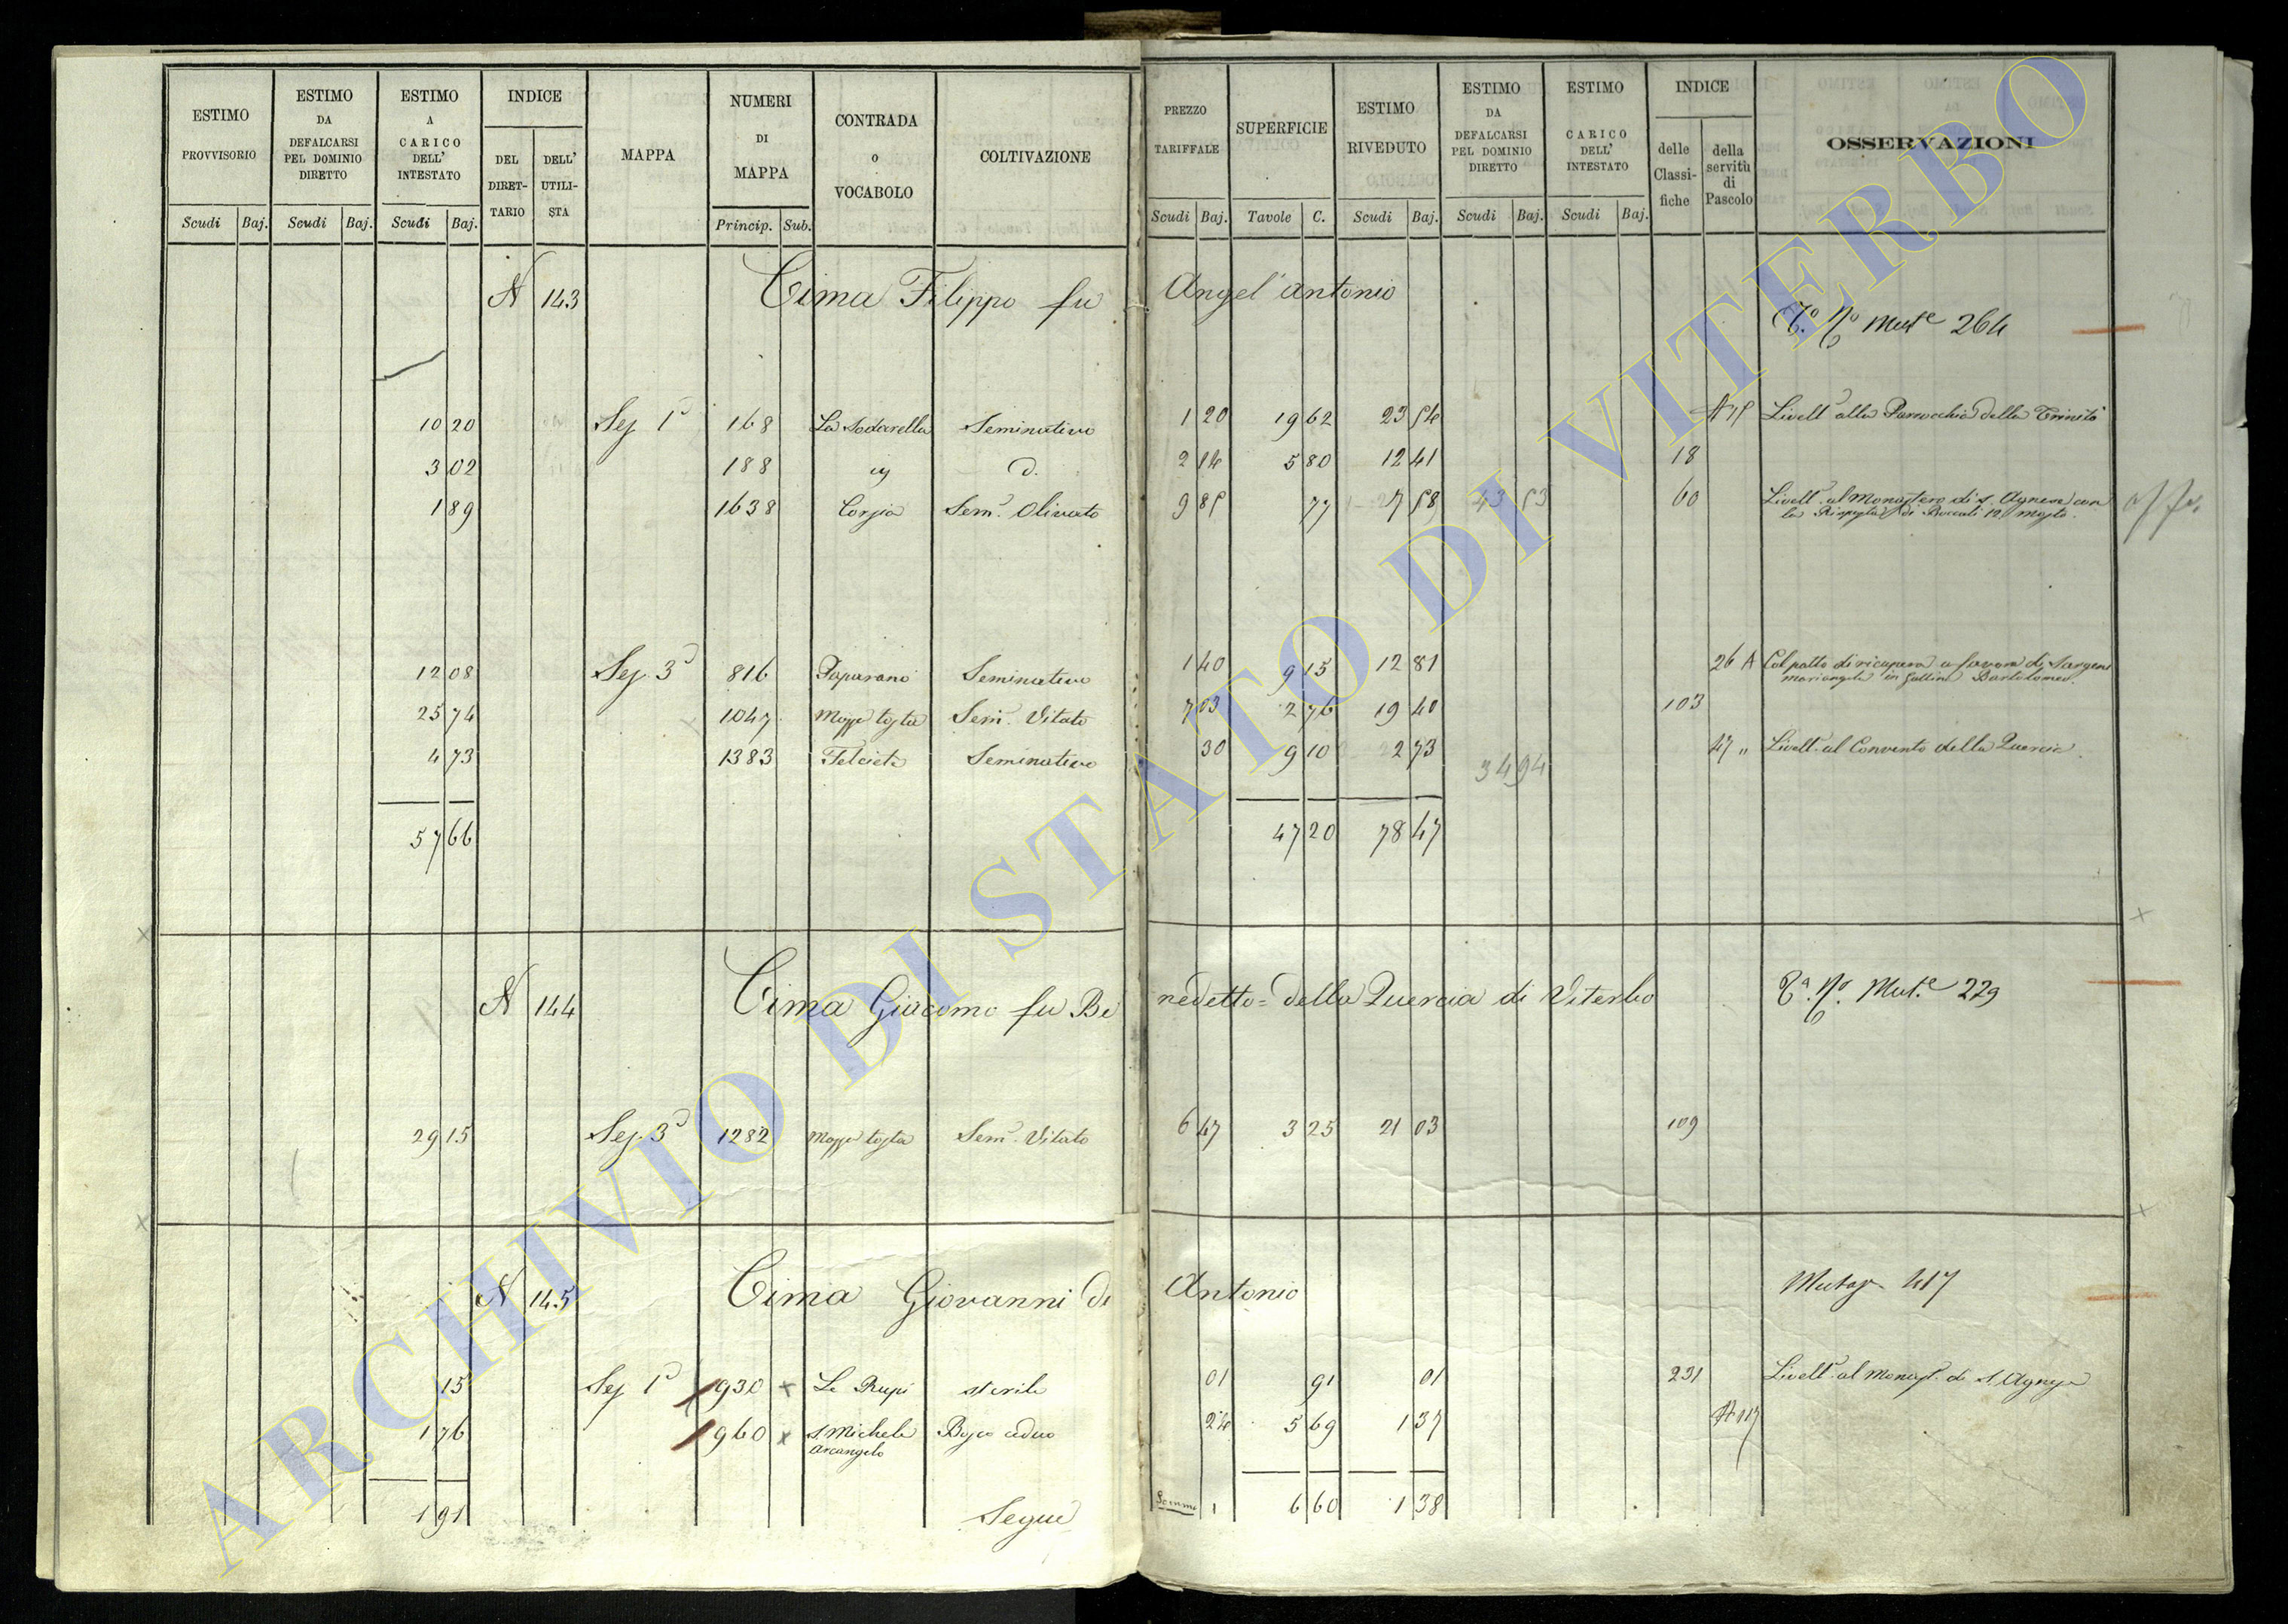 ESTIMO PROVVISORIO
ESTIMO DA DEFALCARSI PEL DOMINIO DIRETTO
ESTIMO A CARICO DELL' INTESTATO
INDICE
DEL DIRET- TARIO
DELL' UTILI- STA
MAPPA
NUMERI DI MAPPA
CONTRADA o VOCABOLO
COLTIVAZIONE
PREZZO TARIFFALE
SUPERFICIE
ESTIMO RIVEDUTO
ESTIMO DA DEFALCARSI PEL DOMINIO DIRETTO
ESTIMO CARICO DELL' INTESTATO
INDICE
delle Classi- fiche
della servitù di Pascolo
OSSERVAZIONI
Scudi Baj. Scudi Baj. Scudi Baj. Princip. Sub. Scudi Baj. Tavole C. Scudi Baj. Scudi Baj. Scudi Baj.
N 143 Cima Filippo fu Angel'Antonio
Mut.e 264
10 20 Sez 1a 168 La Sodarella Seminativo 1 20 19 62 23 54 A 75 Livell. alla Parrocchia della Trinità
3 02 188 d. 2 14 5 80 12 41 18
1 89 1638 Corgia Sem. Olivato 9 85 77 7 58 43 53 60 Livell. al Monastero di S. Agnese con
la Risposta di Boccali 12 Mosto.
12 08 Sez. 3a 816 Paparano Seminativo 1 40 9 15 12 81 26 A Col patto di ricupera a favore di
Mariangela in Bartolomeo.
25 74 1047 Mazza tosta Sem. Vitato 7 03 2 76 19 40 103
4 73 1383 Felceta Seminativo 30 9 10 2 73 47 " Livell. al Convento della Quercia.
34 94
57 66 47 20 78 47
N 144 Cima Giacomo fu Benedetto = della Quercia di Viterbo
Mut.e 229
29 15 Sez. 3a 1282 Mazza tosta Sem. Vitato 6 47 3 25 21 03 109
N 145 Cima Giovanni di Antonio
Mutaz. 417
15 Sez 1a 930 x Le Rupi sterile 01 91 01 231 Livell. al Monast. di S. Agnese
1 76 960 x S. Michele Arcangelo Bosco ceduo 24 5 69 1 37 A 117
1 91 Segue Somma 6 60 1 38
ARCHIVIO DI STATO DI VITERBO